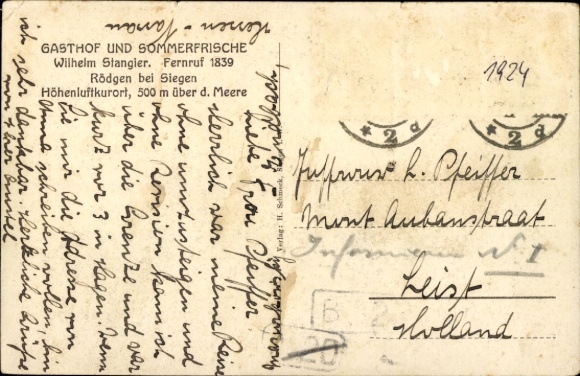 GASTHOF UND SOMMERFRISCHE
Wilhelm Stangier. Fernruf 1839
Rödgen bei Siegen
Höhenluftkurort, 500 m über d. Meere
Liebe Frau Pfeiffer
Herrlich war meine Reise
ohne umzusteigen und
ohne Revision kam ich
über die Grenze und war
kurz vor 3 in Siegen. Wenn
Sie mir die Adresse von
schreiben wollen, bin
ich sehr dankbar. Herzliche Grüße
von
Verlag: H. Schmeck,
1924
* 2 d
* 2 d
Juffrouw L. Pfeiffer
Mont Aubanstraat
N I
Zeist
Holland
B